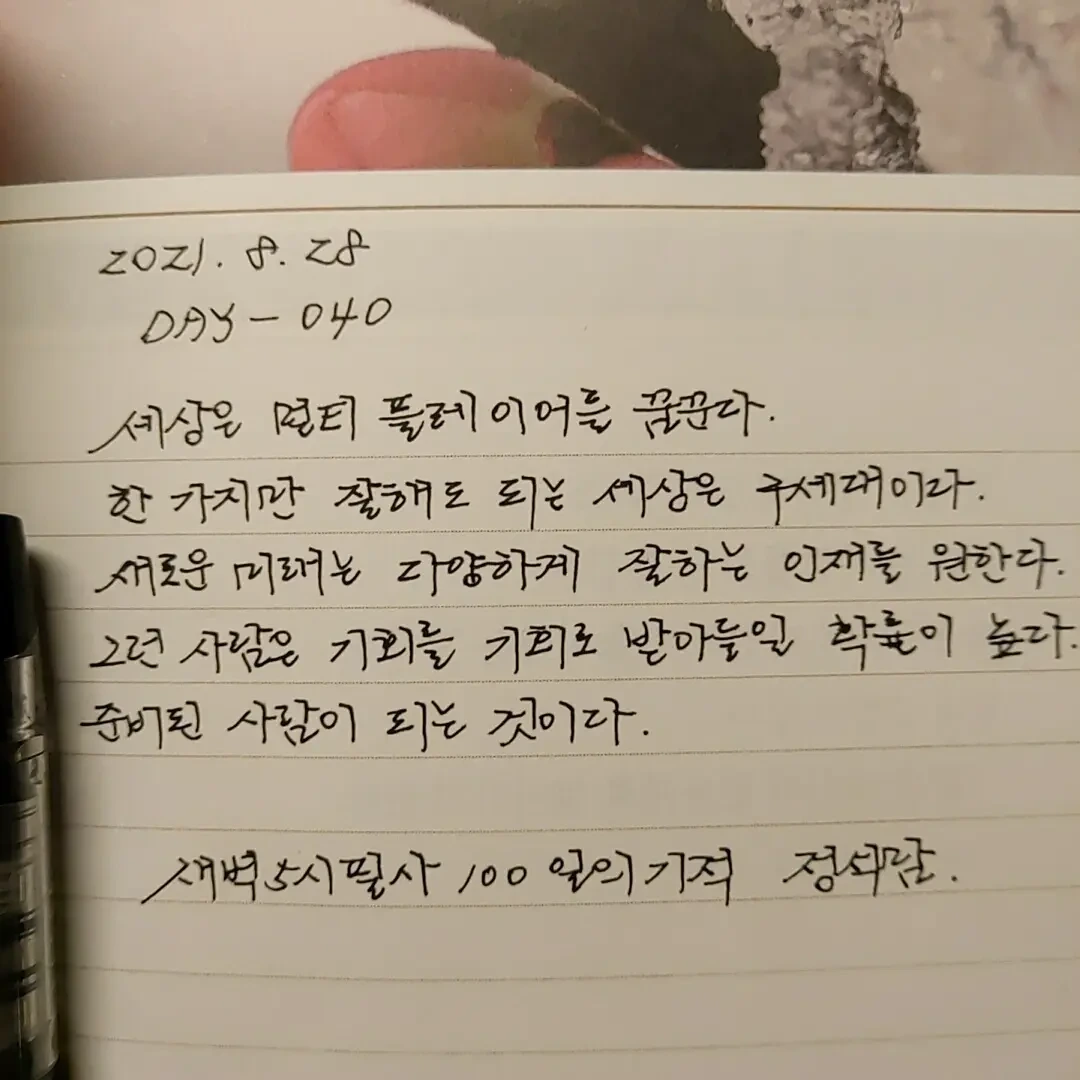 2021. 8. 28
DAY - 040
세상은 멀티 플레이어를 꿈꾼다.
한 가지만 잘해도 되는 세상은 구세대이다.
새로운 미래는 다양하게 잘하는 인재를 원한다.
그런 사람은 기회를 기회로 받아들일 확률이 높다.
준비된 사람이 되는 것이다.
새벽5시필사 100일의기적